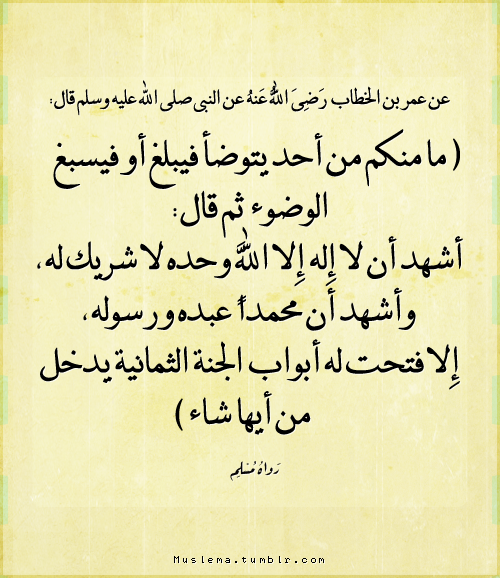 عن عمر بن الخطاب رَضِيَ اللَّهُ عَنهُ عن النبى صلى الله عليه وسلم قال:
( ما منكم من أحد يتوضأ فيبلغ أو فيسبغ
الوضوء ثم قال:
أشهد أن لا إِله إِلا اللَّه وحده لا شريك له،
وأشهد أن محمداً عبده ورسوله،
إِلا فتحت له أبواب الجنة الثمانية يدخل
من أيها شاء )
رَواهُ مُسْلِم
Muslema.tumblr.com